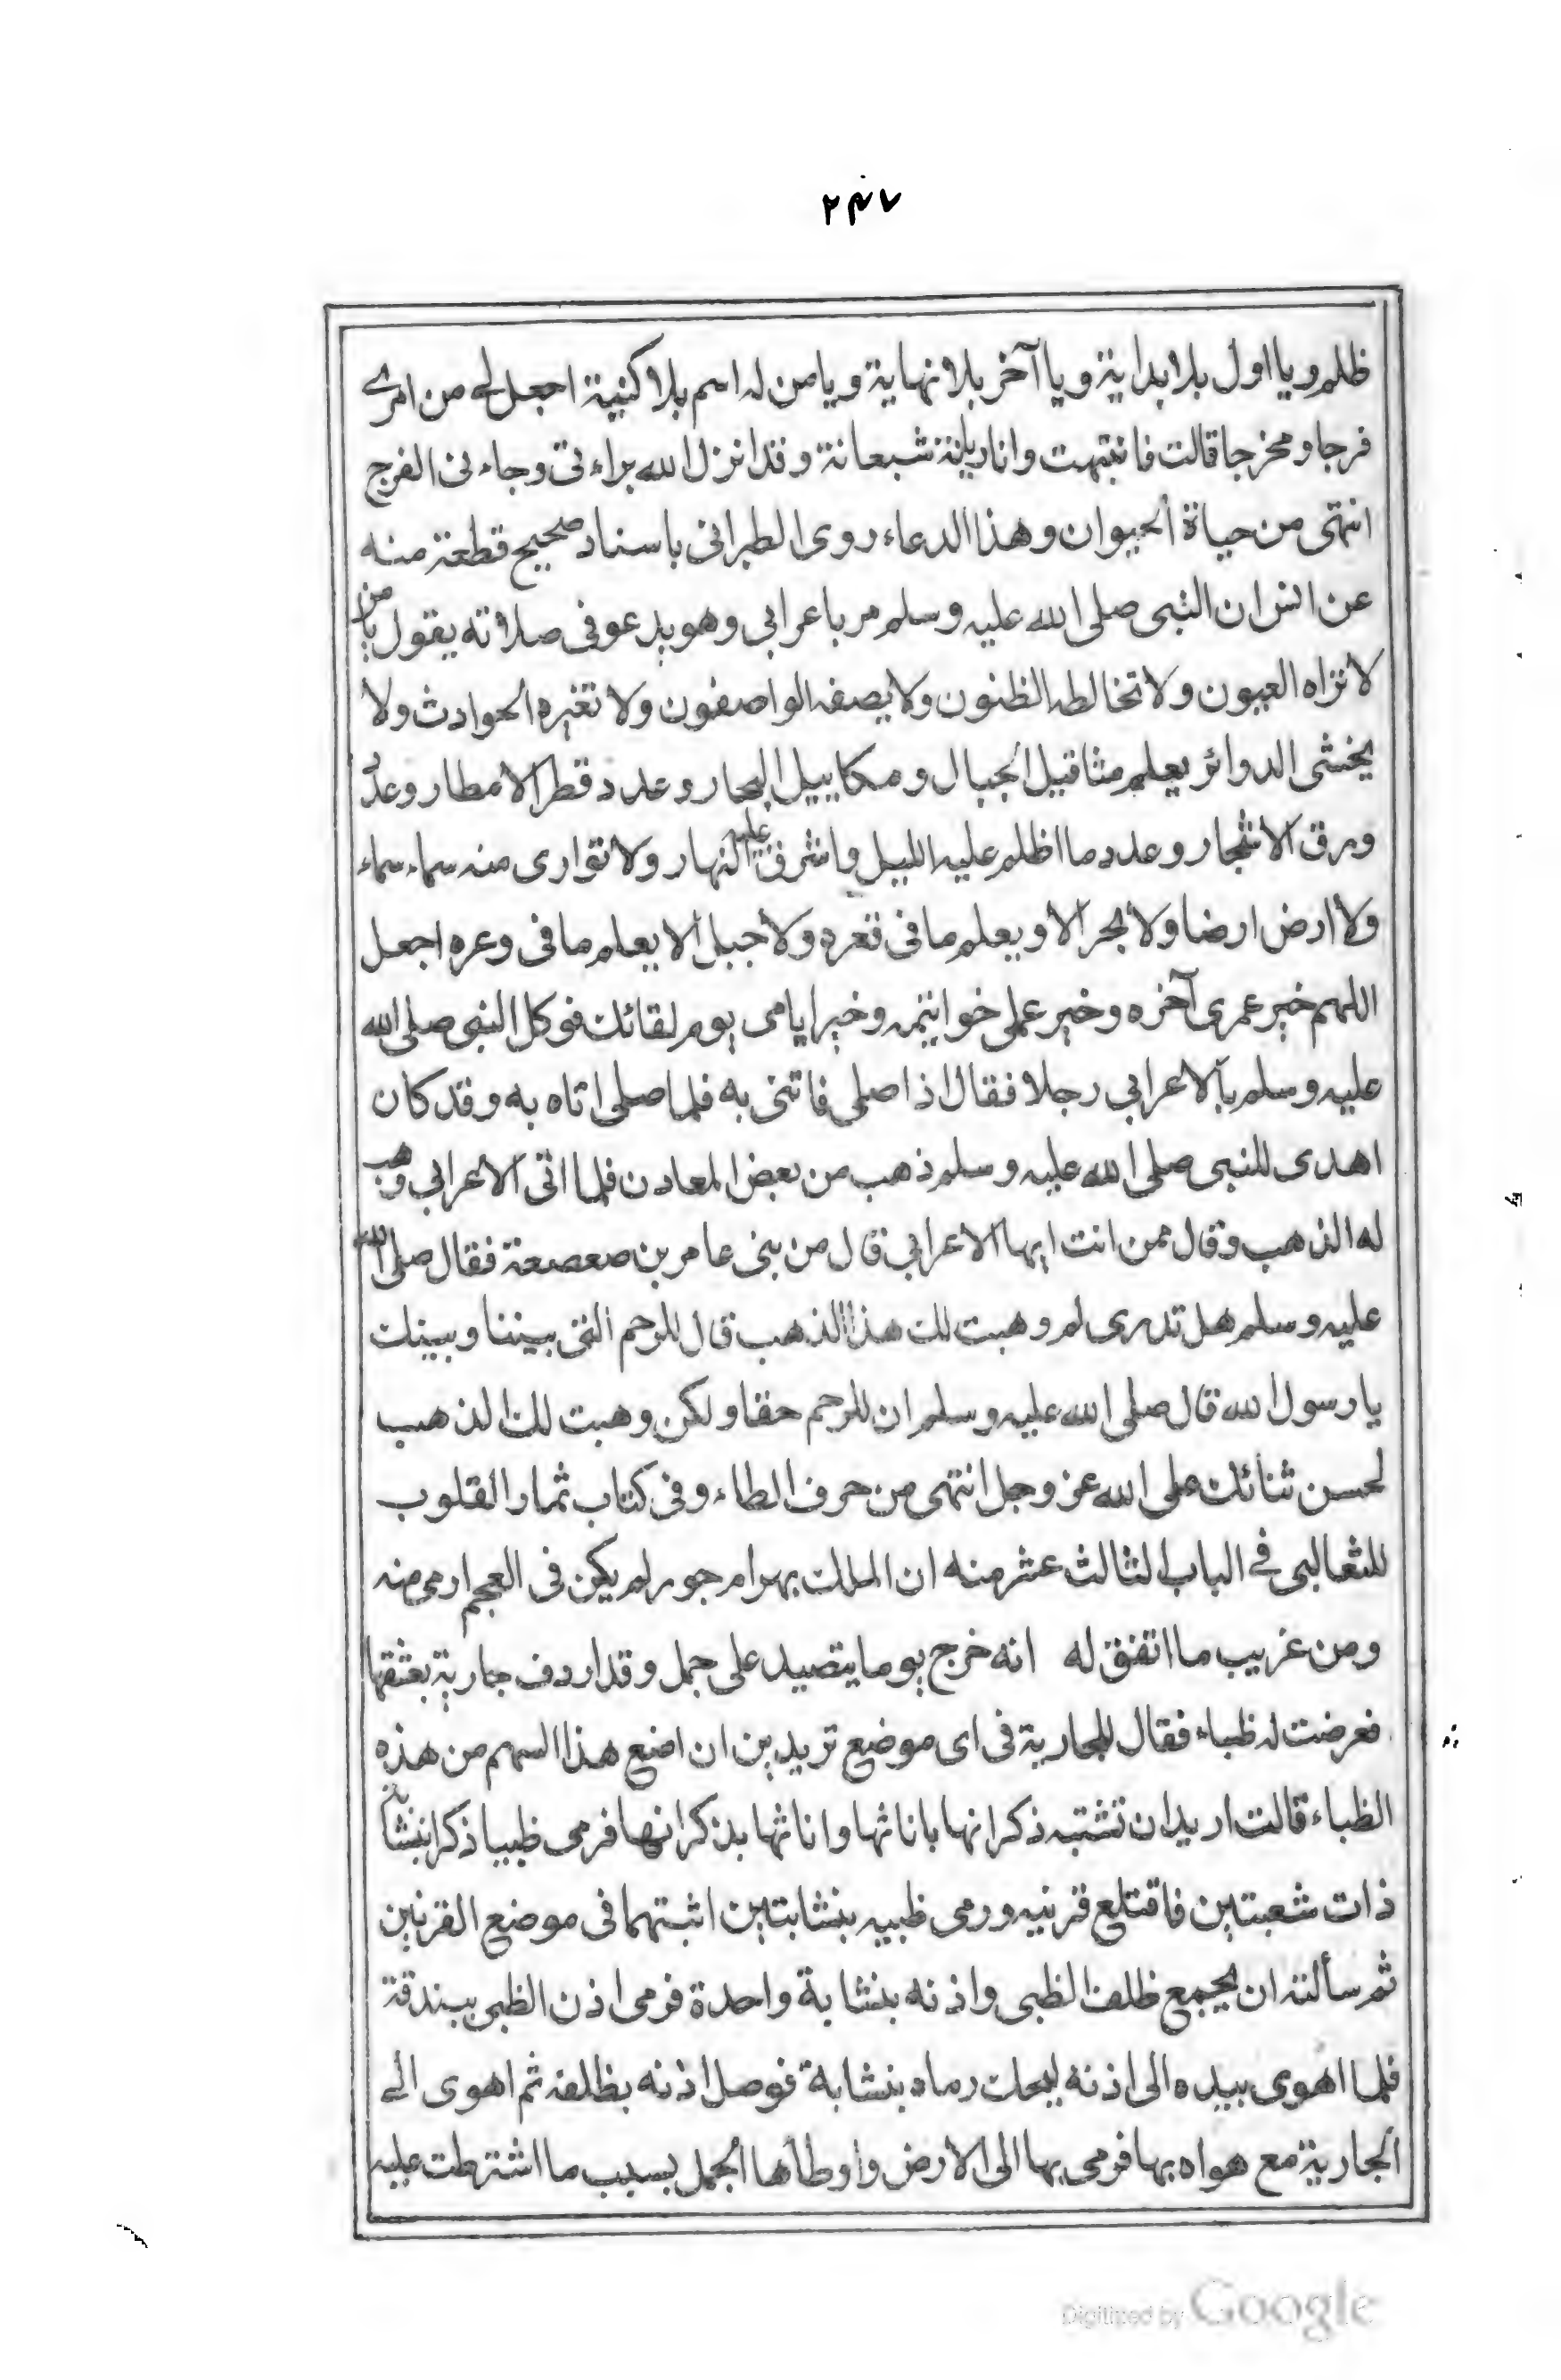 ٢٤٧
ظلم ويا اول بلا بداية ويا آخر بلا نهاية ويا من له اسم بلا كنية اجعل لي من امري
فرجا ومخرجا قالت فانتبهت وانا ريانة شبعانة وقد انزل الله براءتى وجاءنى الفرج
انتهى من حياة الحيوان وهذا الدعاء روى الطبرانى باسناد صحيح قطعة منه
عن انس ان النبى صلى الله عليه وسلم مر باعرابي وهو يدعو فى صلاته يقول يا من
لا تراه العيون ولا تخالطه الظنون ولا يصفه الواصفون ولا تغيره الحوادث ولا
يخشى الدوائر يعلم مثاقيل الجبال ومكاييل البحار وعدد قطر الامطار وعدد
ورق الاشجار وعدد ما اظلم عليه الليل واشرق عليه النهار ولا توارى منه سماء سماء
ولا ارض ارضا ولا بحر الا ويعلم ما فى قعره ولا جبل الا يعلم ما فى وعره اجعل
اللهم خير عمرى آخره وخير عملى خواتيمه وخير ايامى يوم لقائك فوكل النبى صلى الله
عليه وسلم بالاعرابي رجلا فقال اذا صلى فاتنى به فلما صلى اتاه به وقد كان
اهدى للنبى صلى الله عليه وسلم ذهب من بعض المعادن فلما اتى الاعرابي وهب
له الذهب وقال ممن انت ايها الاعرابي قال من بنى عامر بن صعصعة فقال صلى الله
عليه وسلم هل تدرى لم وهبت لك هذا الذهب قال للرحم التى بيننا وبينك
يا رسول الله قال صلى الله عليه وسلم ان للرحم حقا ولكن وهبت لك الذهب
لحسن ثنائك على الله عز وجل انتهى من حرف الطاء وفى كتاب ثمار القلوب
للثعالبى في الباب الثالث عشر منه ان الملك بهرام جور لم يكن فى العجم ارمى منه
ومن غريب ما اتفق له انه خرج يوما يتصيد على جمل وقد اردف جارية يعشقها
فعرضت له ظباء فقال للجارية فى اى موضع تريدين ان اضع هذا السهم من هذه
الظباء قالت اريد ان تشبه ذكرانها باناثها واناثها بذكرانها فرمى ظبيا ذكرا بنشابة
ذات شعبتين فاقتلع قرنيه ورمى ظبيه بنشابتين اثبتهما فى موضع القرنين
ثم سألته ان يجمع ظلف الظبى واذنه بنشابة واحدة فرمى اذن الظبى ببندقة
فلما اهوى بيده الى اذنه ليحك رماه بنشابة فوصل اذنه بظلفه ثم اهوى الى
الجارية مع هواه بها فرمى بها الى الارض واوطأها الجمل بسبب ما اشترطت عليه
Digitized by Google